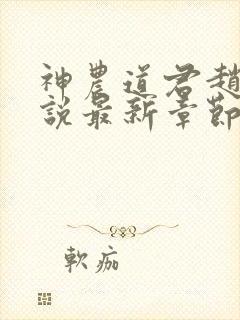 神農道君趙
說最新章節
軟痂